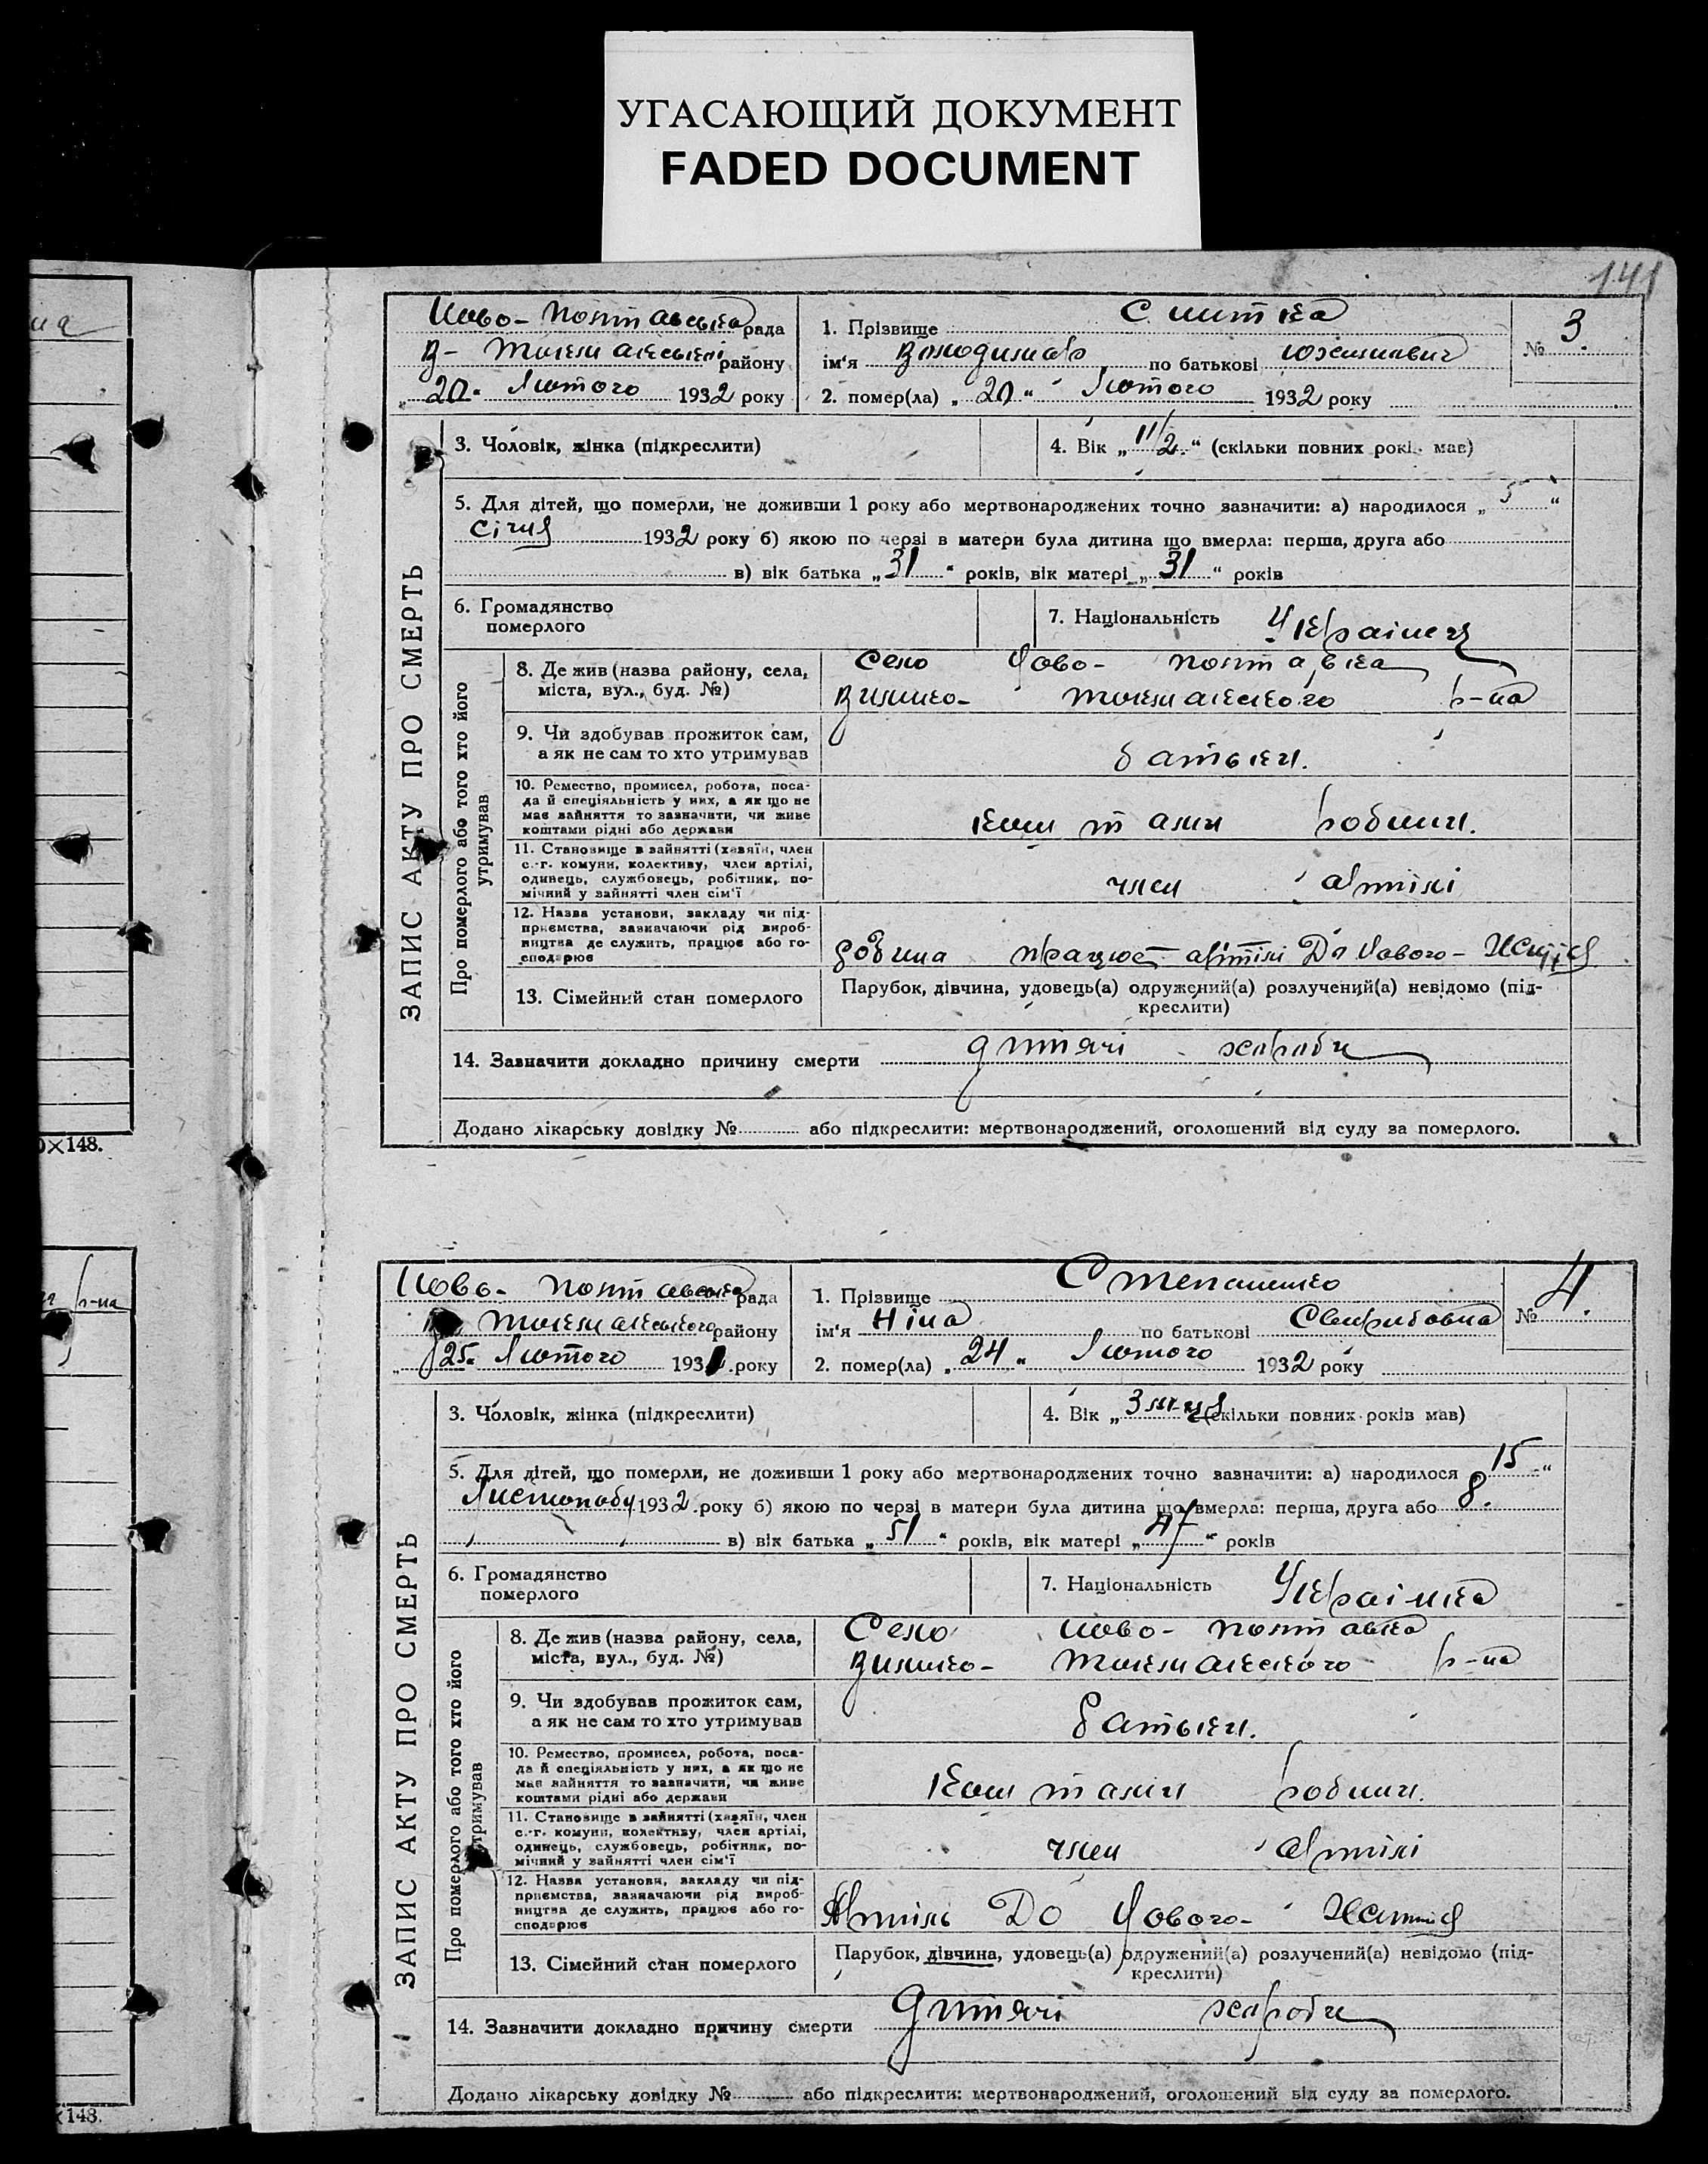 УГАСАЮЩИЙ ДОКУМЕНТ
FADED DOCUMENT
141
Ново-Полтавська рада
В-Токмакської району
„20“ Лютого 1932 року
1. Прізвище Снитка
ім'я Володимир по батькові
2. помер(ла) „20“ Лютого 1932 року
№ 3.
ЗАПИС АКТУ ПРО СМЕРТЬ
3. Чоловік, жінка (підкреслити)
4. Вік „1 1/2“ (скільки повних років мав)
5. Для дітей, що померли, не доживши 1 року або мертвонароджених точно зазначити: а) народилося „5“
Січня 1932 року б) якою по черзі в матери була дитина що вмерла: перша, друга або
в) вік батька „31“ років, вік матері „31“ років
6. Громадянство
померлого
7. Національність Українець
Про померлого або того хто його
утримував
8. Де жив (назва району, села,
міста, вул., буд. №)
Село Ново-Полтавка
Велико-Токмакского р-на
9. Чи здобував прожиток сам,
а як не сам то хто утримував
батьки.
10. Ремество, промисел, робота, поса-
да й спеціяльність у них, а як що не
має зайняття то зазначити, чи живе
коштами рідні або держави
коштами родини.
11. Становище в зайнятті (хазяїн, член
с.-г. комуни, колективу, член артілі,
одинець, службовець, робітник, по-
мічний у зайнятті член сім'ї
член артілі
12. Назва установи, закладу чи під-
приємства, зазначаючи рід вироб-
ництва де служить, працює або го-
сподарює
родина працює артілі До Нового-Життя
13. Сімейний стан померлого
Парубок, дівчина, удовець(а) одружений(а) розлучений(а) невідомо (під-
креслити)
14. Зазначити докладно причину смерти дитячі хвороби
Додано лікарську довідку № або підкреслити: мертвонароджений, оголошений від суду за померлого.
0×148.
Ново-Полтавська рада
Токмакського району
„25“ Лютого 193 року
1. Прізвище Степаненко
ім'я Ніна по батькові Свиридовна
2. помер(ла) „24“ Лютого 1932 року
№ 4.
р-на
ЗАПИС АКТУ ПРО СМЕРТЬ
3. Чоловік, жінка (підкреслити)
4. Вік „3 м-ця (скільки повних років мав)
5. Для дітей, що померли, не доживши 1 року або мертвонароджених точно зазначити: а) народилося „15“
Листопаду 1932 року б) якою по черзі в матери була дитина що вмерла: перша, друга або 8.
в) вік батька „51“ років, вік матері „47“ років
6. Громадянство
померлого
7. Національність Українка
Про померлого або того хто його
утримував
8. Де жив (назва району, села,
міста, вул., буд. №)
Село Ново-Полтавка
Велико-Токмакского р-на
9. Чи здобував прожиток сам,
а як не сам то хто утримував
Батьки.
10. Ремество, промисел, робота, поса-
да й спеціяльність у них, а як що не
має зайняття то зазначити, чи живе
коштами рідні або держави
Коштами родини.
11. Становище в зайнятті (хазяїн, член
с.-г. комуни, колективу, член артілі,
одинець, службовець, робітник, по-
мічний у зайнятті член сім'ї
член артілі
12. Назва установи, закладу чи під-
приємства, зазначаючи рід вироб-
ництва де служить, працює або го-
сподарює
Артіль До Нового-Життя
13. Сімейний стан померлого
Парубок, дівчина, удовець(а) одружений(а) розлучений(а) невідомо (під-
креслити)
14. Зазначити докладно причину смерти Дитячі хвороби
Додано лікарську довідку № або підкреслити: мертвонароджений, оголошений від суду за померлого.
×148.